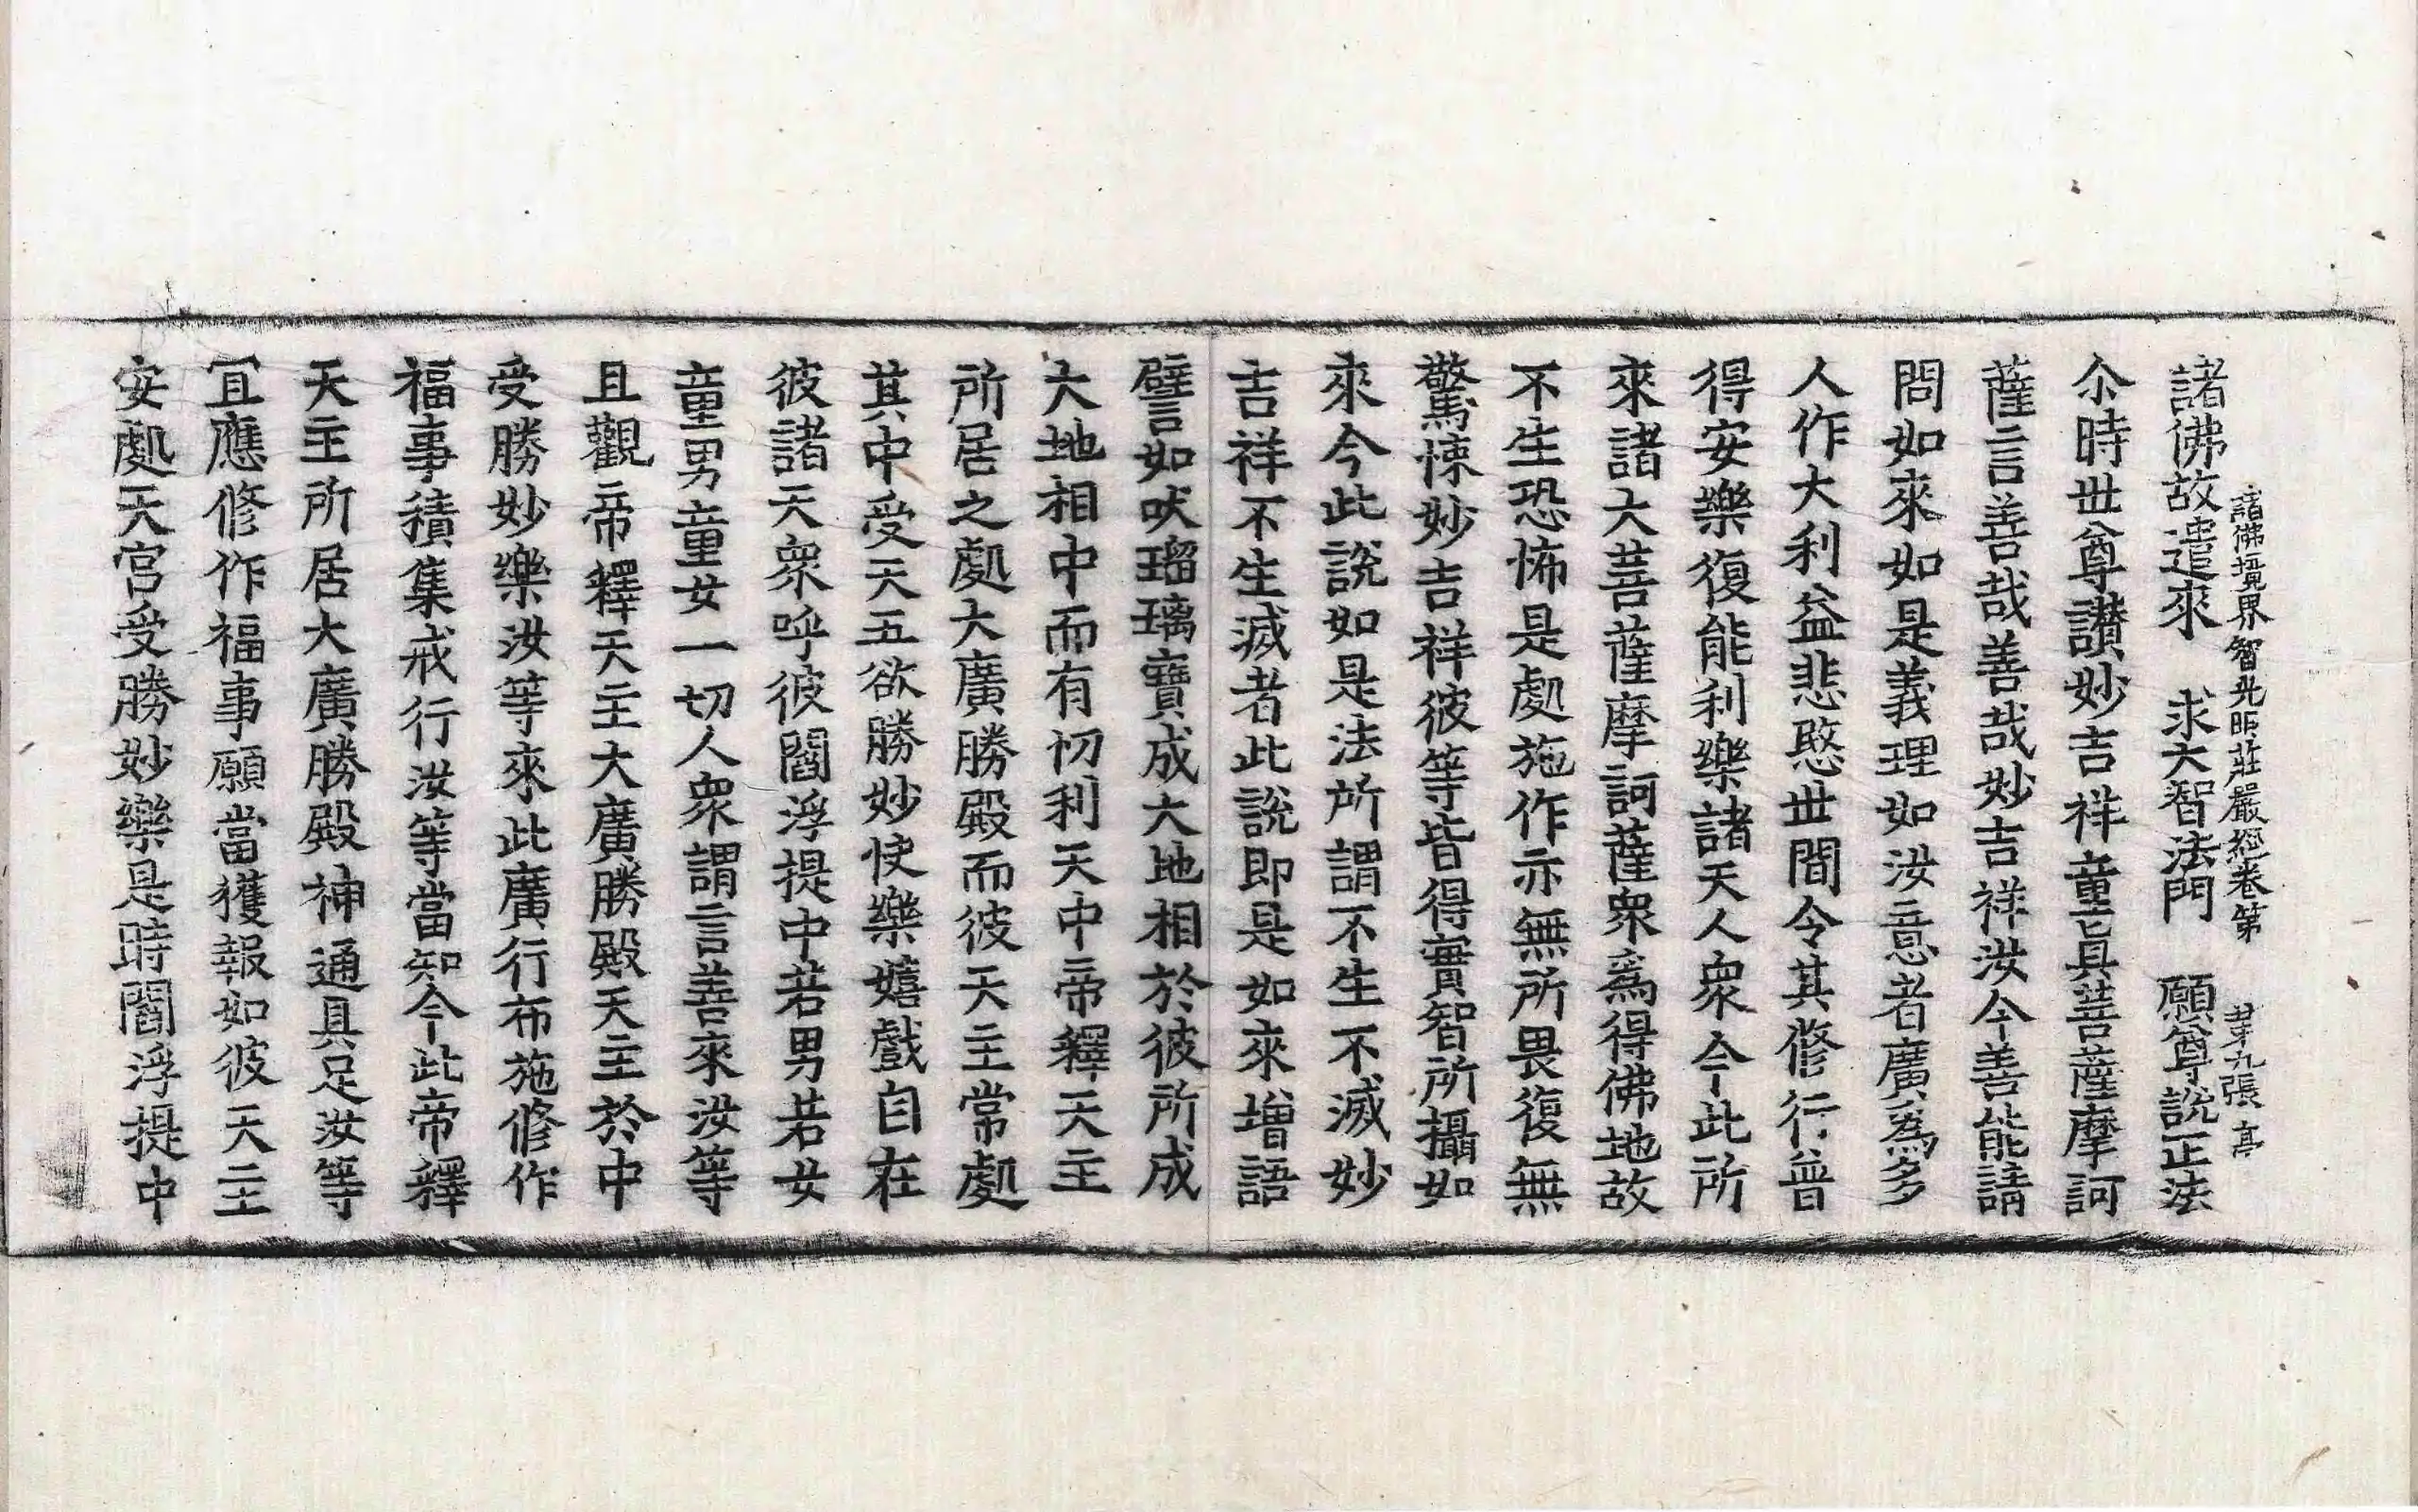 諸佛境界智光明莊嚴經卷第 苐九張 亭
諸佛故遣來 求大智法門 願尊說正法
尒時世尊讃妙吉祥童眞菩薩摩訶
薩言善哉善哉妙吉祥汝今善能請
問如來如是義理如汝意者廣爲多
人作大利益悲愍世間令其修行普
得安樂復能利樂諸天人衆今此所
來諸大菩薩摩訶薩衆爲得佛地故
不生恐怖是處施作亦無所畏復無
驚悚妙吉祥彼等皆得實智所攝如
來今此說如是法所謂不生不滅妙
吉祥不生滅者此說即是如來增語
譬如吠瑠璃寶成大地相於彼所成
大地相中而有忉利天中帝釋天主
所居之處大廣勝殿而彼天主常處
其中受天五欲勝妙快樂嬉戲自在
彼諸天衆呼彼閻浮提中若男若女
童男童女一切人衆謂言善來汝等
且觀帝釋天主大廣勝殿天主於中
受勝妙樂汝等來此廣行布施修作
福事積集戒行汝等當知今此帝釋
天主所居大廣勝殿神通具足汝等
冝應修作福事願當獲報如彼天主
安處天宮受勝妙樂是時閻浮提中